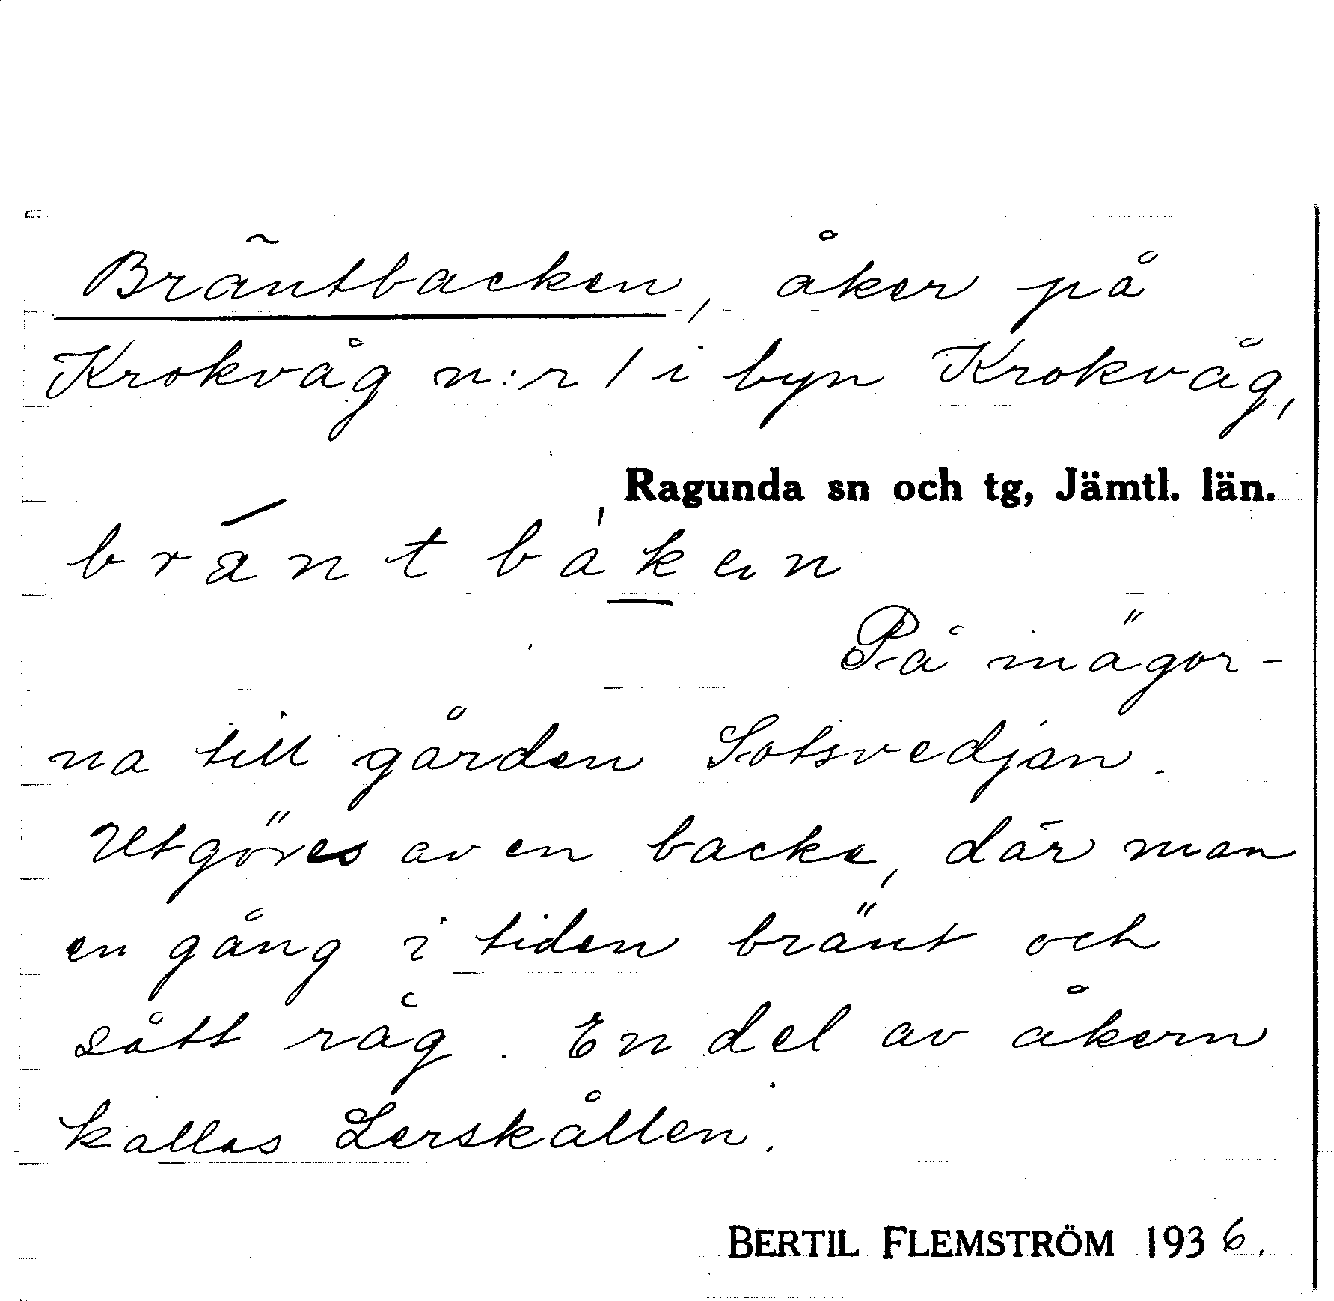 Bräntbacken, åker på
Krokvåg n:r 1 i byn Krokvåg,
Ragunda sn och tg, Jämtl. län.
bräntbakən
På mägor-
na till gården Sotsvedjan.
Utgöres av en backe, där man
en gång i tiden bränt och
sått råg. En del av åkern
kallas Lerskållen.
BERTIL FLEMSTRÖM 1936.